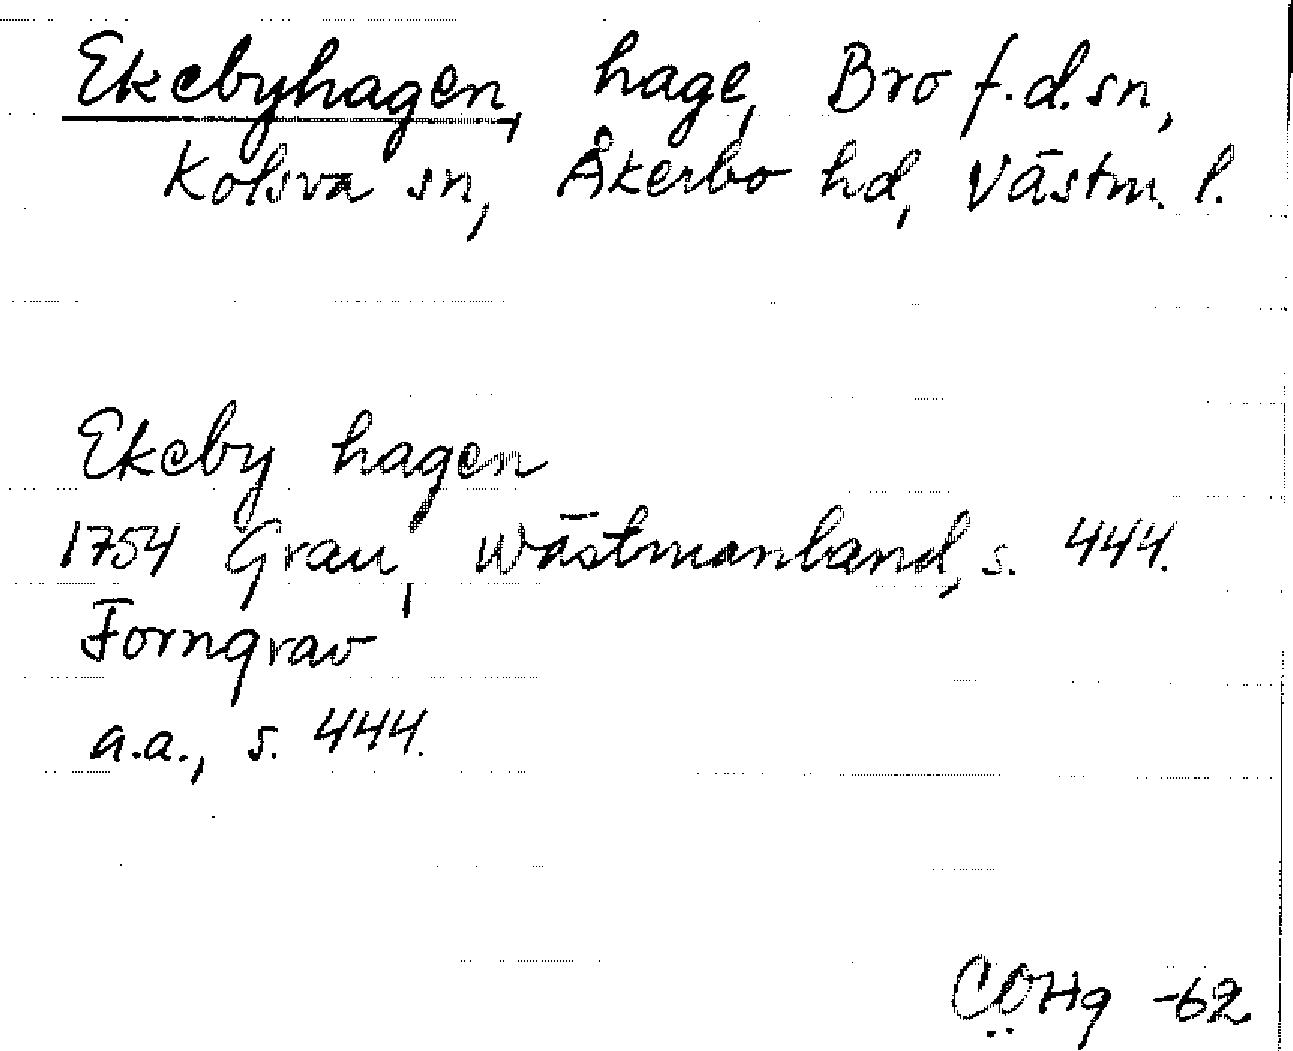 Ekebyhagen, hage, Bro f.d. sn,
Kolsva sn, Åkerbo hd, Västm. l.
Ekeby hagen
1754 Grau, Wästmanland, s. 444.
Forngrav
a.a., s. 444.
CÖHg -62